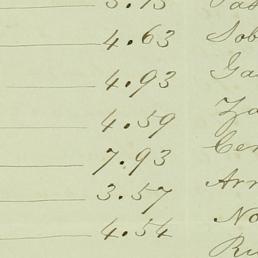 4.63 Sob
4.93 Ga
4.59 Za
7.93 Cen
3.57 Arr
4.54 No
Ru